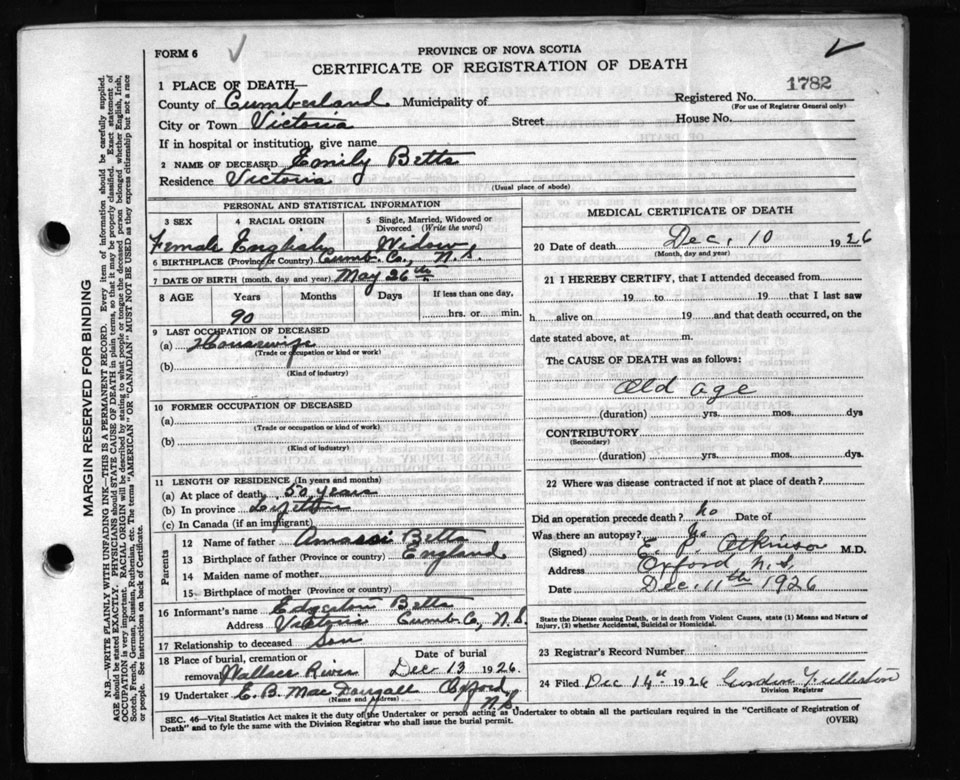 FORM 6
PROVINCE OF NOVA SCOTIA
CERTIFICATE OF REGISTRATION OF DEATH
1782
1 PLACE OF DEATH—
County of Cumberland Municipality of
Registered No.
(For use of Registrar General only)
City or Town Victoria Street House No.
If in hospital or institution, give name
2 NAME OF DECEASED Emily Betts
Residence Victoria
(Usual place of abode)
PERSONAL AND STATISTICAL INFORMATION
3 SEX 4 RACIAL ORIGIN 5 Single, Married, Widowed or Divorced (Write the word)
Female English Widow
6 BIRTHPLACE (Province or Country) Cumb. Co., N.S.
7 DATE OF BIRTH (month, day and year) May 26th
8 AGE Years Months Days If less than one day,
90 hrs. or min.
9 LAST OCCUPATION OF DECEASED
(a) Housewife
(Trade or occupation or kind or work)
(b)
(Kind of industry)
10 FORMER OCCUPATION OF DECEASED
(a)
(Trade or occupation or kind or work)
(b)
(Kind of industry)
11 LENGTH OF RESIDENCE (In years and months)
(a) At place of death 50 years
(b) In province Lifetime
(c) In Canada (if an immigrant)
Parents
12 Name of father Betts
13 Birthplace of father (Province or country) England
14 Maiden name of mother
15 Birthplace of mother (Province or country)
16 Informant's name Edgerton Betts
Address Victoria Cumb. Co, N.S.
17 Relationship to deceased Son
18 Place of burial, cremation or removal Wallace River
Date of burial
Dec 13 1926
19 Undertaker E. B. MacDougall Oxford N.S.
(Name and Address)
MEDICAL CERTIFICATE OF DEATH
20 Date of death Dec, 10 1926
(Month, day and year)
21 I HEREBY CERTIFY, that I attended deceased from
19 to 19 that I last saw
h alive on 19 and that death occurred, on the
date stated above, at m.
The CAUSE OF DEATH was as follows:
Old age
(duration) yrs. mos. dys
CONTRIBUTORY
(Secondary)
(duration) yrs. mos. dys.
22 Where was disease contracted if not at place of death?
Did an operation precede death? no Date of
Was there an autopsy?
(Signed) E. P. Atkinson M.D.
Address Oxford, N.S.
Date Dec. 11th 1926
State the Disease causing Death, or in death from Violent Causes, state (1) Means and Nature of
Injury, (2) whether Accidental, Suicidal or Homicidal.
23 Registrar's Record Number
24 Filed Dec 14th 1926 Gordon Fullerton
Division Registrar
SEC. 46—Vital Statistics Act makes it the duty of the Undertaker or person acting as Undertaker to obtain all the particulars required in the "Certificate of Registration of
Death" and to fyle the same with the Division Registrar who shall issue the burial permit.
(OVER)
MARGIN RESERVED FOR BINDING
N.B.—WRITE PLAINLY WITH UNFADING INK—THIS IS A PERMANENT RECORD. Every item of information should be carefully supplied.
AGE should be stated EXACTLY. PHYSICIANS should STATE CAUSE OF DEATH in plain terms, so that it may be properly classified. Exact statement of
OCCUPATION is very important. RACIAL ORIGIN will be described by stating to what people or tongue the deceased person belonged whether English, Irish,
Scotch, French, German, Russian, Ruthenian, etc. The terms "AMERICAN" OR "CANADIAN" MUST NOT BE USED as they express citizenship but not a race
or people. See instructions on back of Certificate.